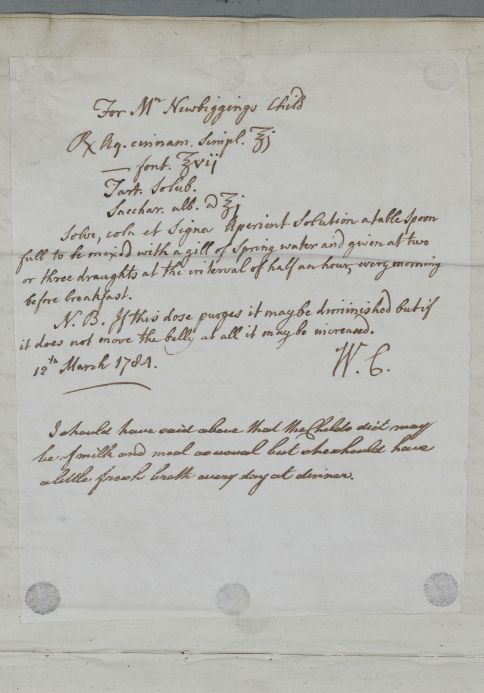 For Mr Newbiggings Child
℞ Aq. cinnam. simpl. ℥j
— font. ℥vij
Tart. Solub.
Sacchar. alb. a ℥j
Solve, cola et Signa Aperient Solution a table spoon
full to be mixed with a gill of Spring water and given at two
or three draughts at the interval of half an hour, every morning
before breakfast.
N. B. If this dose purges it may be diminished but if
it does not move the belly at all it may be increased.
12th March 1784.
W. C.
I should have said above that the Childs diet may
be of milk and meal as usual but she should have
a little fresh broth every day at dinner.